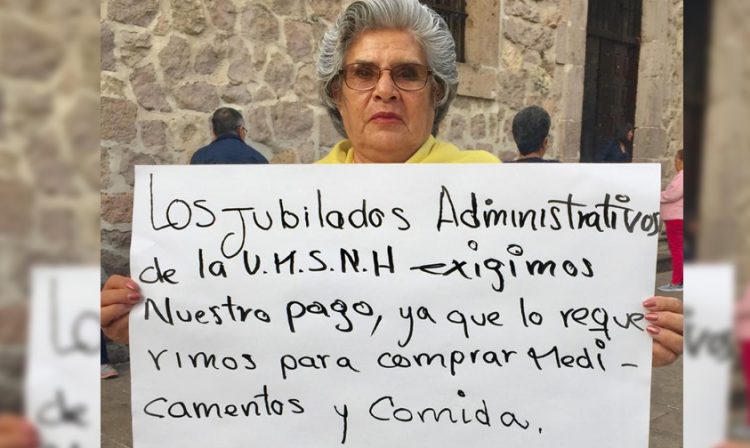 Los jubilados Administrativos
de la U.M.S.N.H exigimos
Nuestro pago, ya que lo reque
rimos para comprar Medi-
camentos y Comida.